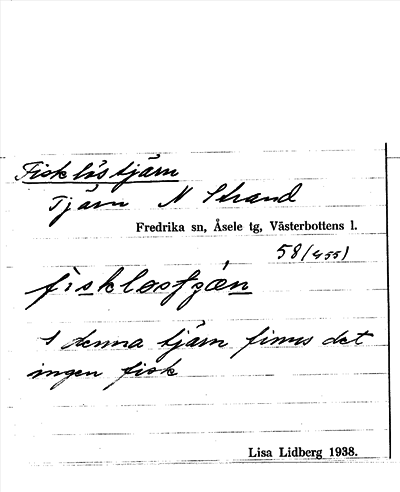 Fisklöstjärn
Tjärn N Strand
Fredrika sn, Åsele tg, Västerbottens l.
58/(455)
I denna tjärn finns det
ingen fisk
Lisa Lidberg 1938.